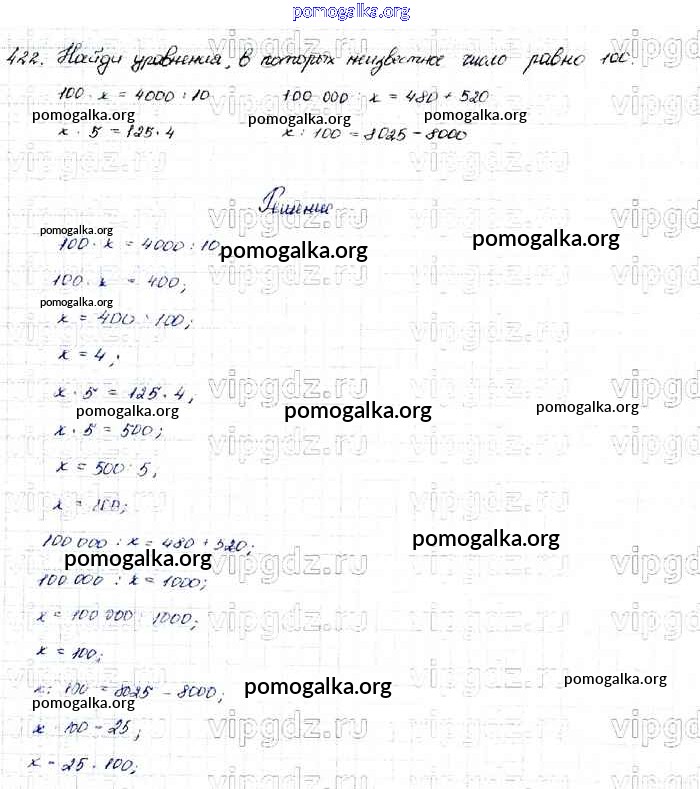 pomogalka.org
422. Найди уравнения, в которых неизвестное число равно 100.
100 · x = 4000 : 10 100 000 : x = 480 + 520
pomogalka.org pomogalka.org pomogalka.org
x · 5 = 125 · 4 x : 100 = 8025 - 8000
Решение
vipgdz.ru vipgdz.ru vipgdz.ru
pomogalka.org
100 · x = 4000 : 10 pomogalka.org pomogalka.org
100 · x = 400;
pomogalka.org
x = 400 : 100;
vipgdz.ru vipgdz.ru vipgdz.ru
x = 4;
x · 5 = 125 · 4;
vipgdz.ru vipgdz.ru
pomogalka.org pomogalka.org pomogalka.org
x · 5 = 500;
x = 500 : 5;
vipgdz.ru vipgdz.ru vipgdz.ru
x = 100;
100 000 : x = 480 + 520;
pomogalka.org pomogalka.org
100 000 : x = 1000;
vipgdz.ru vipgdz.ru
x = 100 000 : 1000;
vipgdz.ru vipgdz.ru vipgdz.ru
x = 100;
x : 100 = 8025 - 8000;
pomogalka.org pomogalka.org pomogalka.org
x : 100 = 25;
vipgdz.ru vipgdz.ru vipgdz.ru
x = 25 · 100;